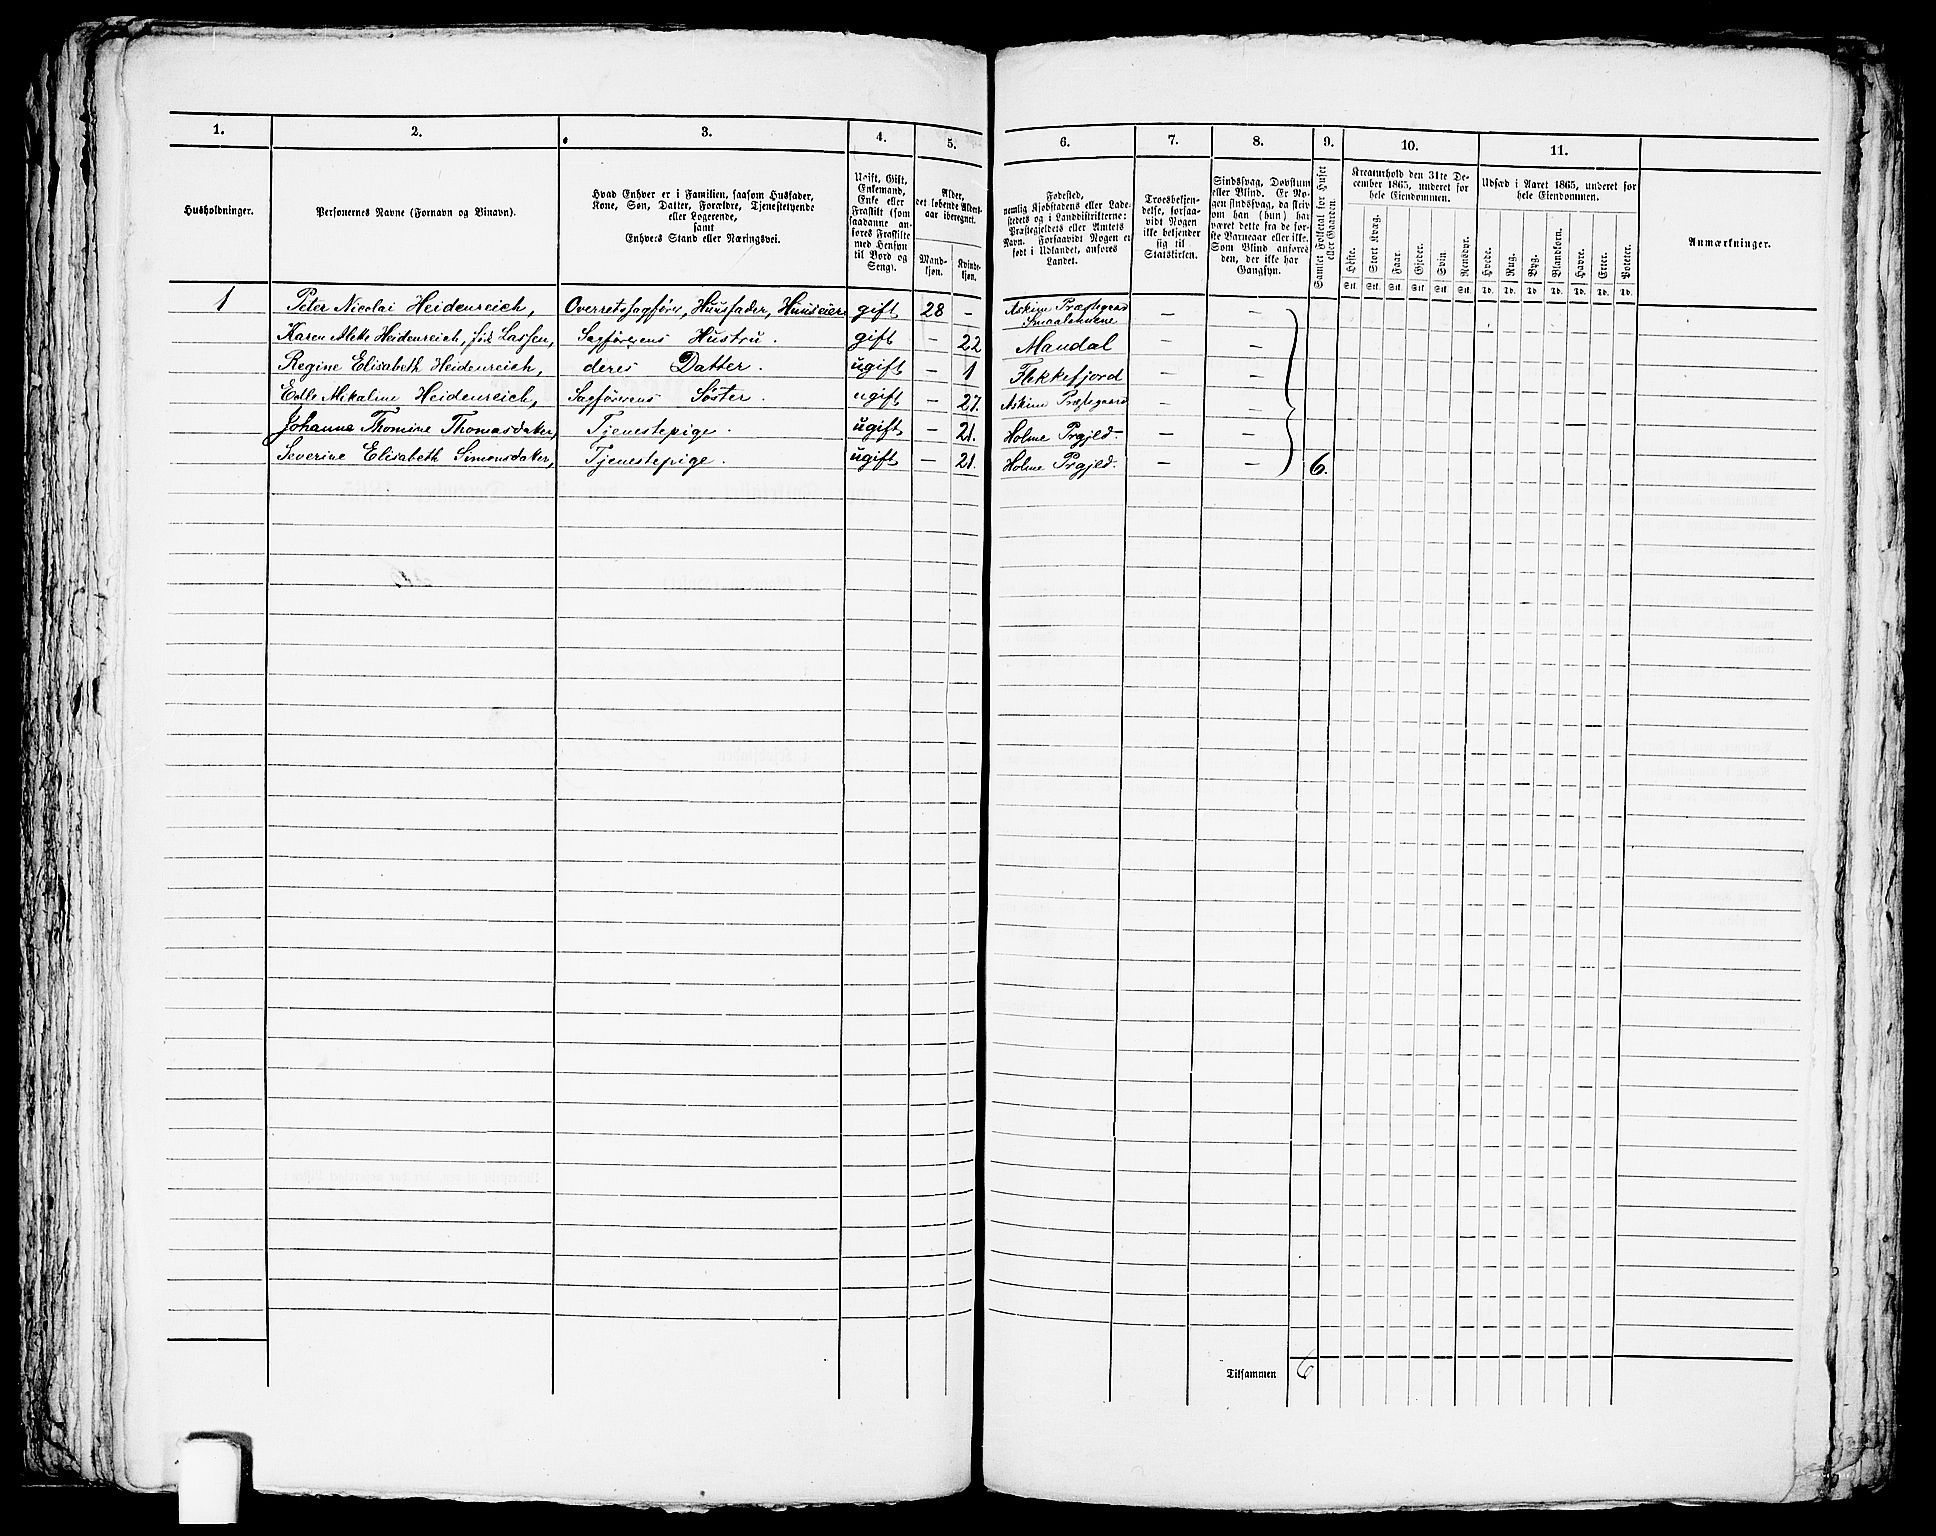 1. 2. 3. 4. 5. 6. 7. 8. 9. 10. 11.
Husholdninger.
Personernes Navne (Fornavn og Binavn).
Hvad Enhver er i Familien, saasom Husfader,
Kone, Søn, Datter, Forældre, Tjenestetyende
eller Logerende,
samt
Enhvers Stand eller Næringsvei.
Ugift, Gift,
Enkemand,
Enke eller
Fraskilt (som
saadanne anføres
Fraskilte
med Hensyn
til Bord og
Seng).
Alder,
det løbende Aldersaar
iberegnet.
Mandkjøn.
Kvindekjøn.
Fødested,
nemlig Kjøbstadens eller Ladestedets
og i Landdistrikterne:
Præstegjeldets eller Amtets
Navn. Forsaavidt Nogen er
født i Udlandet, anføres
Landet.
Troesbekjendelse,
forsaavidt
Nogen
ikke bekjender
sig til
Statskirken.
Sindssvag, Døvstum
eller Blind. Er Nogen
sindssvag, da skriv
om han (hun) har
været dette fra de første
Barneaar eller ikke.
Som Blind anføres
den, der ikke har
Gangsyn.
Samlet Folketal for Huset
eller Gaarden.
Kreaturhold den 31te December
1865, underet for
hele Eiendommen.
Heste. Stort Kvæg. Faar. Gjeder. Svin. Rensdyr.
Stk. Stk. Stk. Stk. Stk. Stk.
Udsæd i Aaret 1865, underet for
hele Eiendommen.
Hvede. Rug. Byg. Blandkorn. Havre. Erter. Poteter.
Td. Td. Td. Td. Td. Td. Td.
Anmærkninger.
1 Peter Nicolai Heidenreich, Overretssagfører, Huusfader, Huuseier gift 28 – Askim Præstegaard Smaalenene – –
Karen Aleke Heidenreich, föd Lassen, Sagförerens Hustru. gift – 22 Mandal – –
Regine Elisabeth Heidenreich, deres Datter. ugift – 1 Flekkefjord – –
Edle Mikaline Heidenreich, Sagförerens Söster. ugift – 27. Askim Præstegaard – –
Johanne Thomine Thomasdater, Tjenestepige. ugift – 21. Holme Prgjeld. – –
Severine Elisabeth Simonsdater, Tjenestepige. ugift – 21. Holme Prgjeld. – – 6.
Tilsammen 6